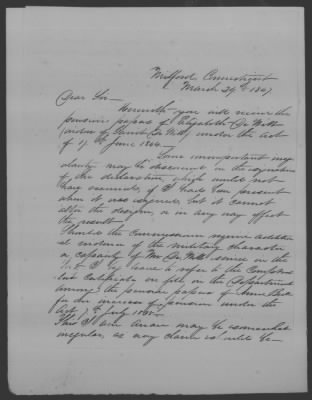 Milford, Connecticut
March 29th 1847
Dear Sir—
Herewith you will receive the
pension papers of Elizabeth De Witt
(widow of De Witt) under the act
of 17th June 1844.
Some unimportant irreg
ularity may be discovered in the signature
of the declaration, which would not
have occurred, if I had been present
when it was signed, but it cannot
alter the design, or in any way affect
the result.
Should the Commissioner require addition
al evidence of the military character
& capacity of Mr. De Witt's service in the
I beg leave to refer to the
Certificate on file in the Department
among the pension papers of
for the increase of pension under the
Act, 7th July 1838.
This I am aware may be somewhat
irregular, as any claim should be